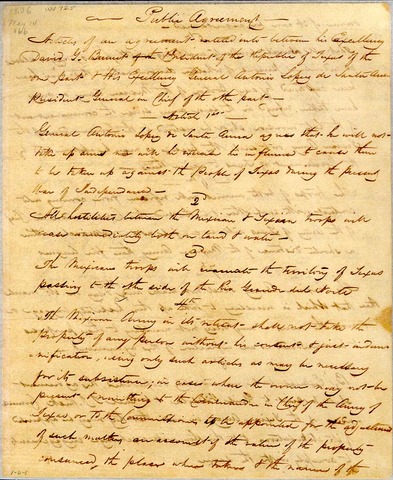 1836 No 125
May 14
Public Agreement
Articles of an agreement entered into between his Excellency
David G. Burnet President of the Republic of Texas of the
one part & His Excellency General Antonio Lopez de Santa Anna
President General in Chief of the other part —
Article 1st —
General Antonio Lopez de Santa Anna agrees that he will not
take up arms nor will he exercise his influence to cause them
to be taken up against the People of Texas during the present
War of Independence —
2
All hostilities between the Mexican & Texian troops will
cease immediately both on land & water —
3
The Mexican troops will evacuate the territory of Texas
passing to the other side of the Rio Grande del Norte
4th
The Mexican Army in its retreat shall not take the
property of any person without his consent & just indem
nification, using only such articles as may be necessary
for its subsistence, in cases where the owner may not be
present & remitting to the Commander in Chief of the Army of
Texas or to the Commissioner to be appointed for the adjustment
of such matters an account of the value of the property
consumed, the place where taken & the name of the
1-2-5